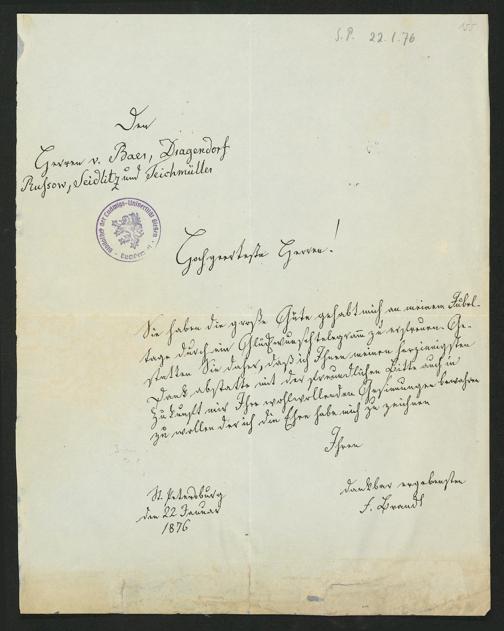 S. P. 22.1.76
155
Den
Herren v. Baer, Dragendorf
Russow, Seidlitz und Teichmüller
Hochgeehrteste Herren!
Sie haben die große Güte gehabt mich an meinem Jubel-
tage durch ein Glückwunschtelegramm zu erfreuen. Ge-
statten Sie daher, daß ich Ihnen meinen herzinnigsten
Dank abstatte mit der freundlichen Bitte auch in
Zukunft mir Ihre wohlwollenden Gesinnungen bewahren
zu wollen der ich die Ehre habe mich zu zeichnen
Ihren
dankbar ergebensten
F. Brandt
St. Petersburg
den 22 Januar
1876